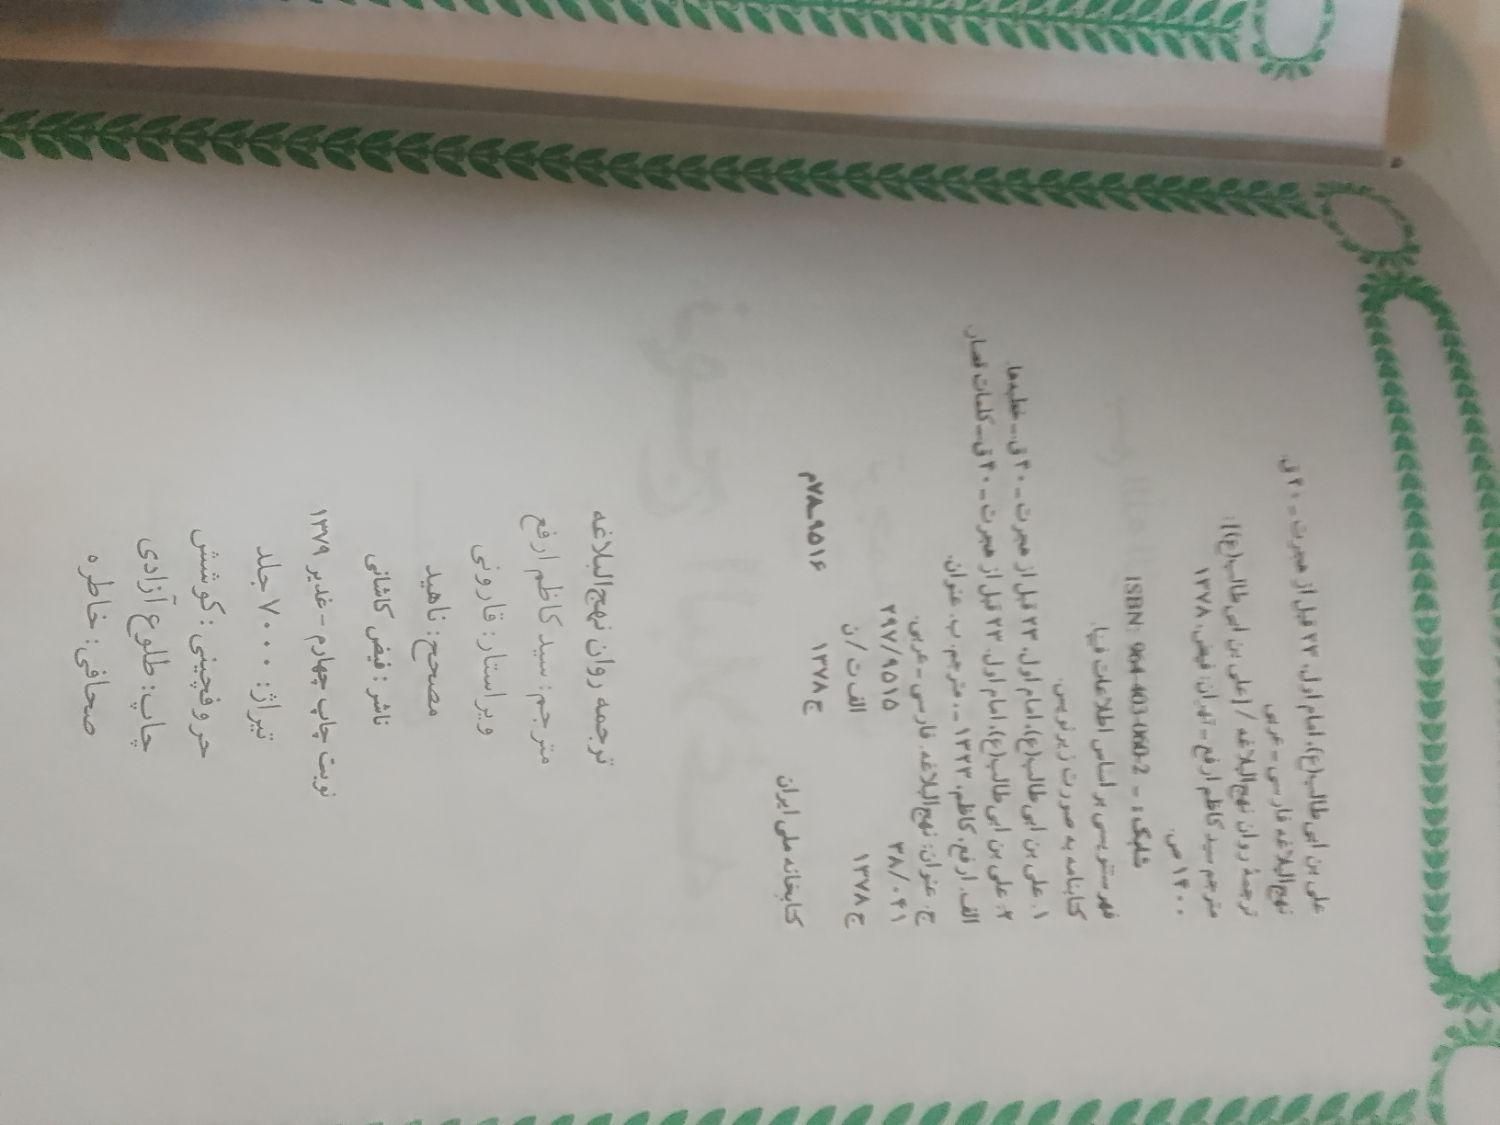 علی بن ابی طالب(ع)، امام اول، ۲۳ قبل از هجرت - ۴۰ ق.
نهج‌البلاغه فارسی - عربی
ترجمهٔ روان نهج‌البلاغه / [علی بن ابی طالب(ع)]؛
مترجم سید کاظم ارفع - تهران: فیض، ۱۳۷۸.
۱۴۰۰ ص.
شابک: - ISBN: 964-403-060-2
فهرستنویسی بر اساس اطلاعات فیپا.
کتابنامه به صورت زیرنویس.
۱. علی بن ابی طالب(ع)، امام اول، ۲۳ قبل از هجرت - ۴۰ ق. - خطبه‌ها.
۲. علی بن ابی طالب(ع)، امام اول، ۲۳ قبل از هجرت - ۴۰ ق. - کلمات قصار.
الف. ارفع، کاظم، ۱۳۲۳ - ، مترجم. ب. عنوان.
ج. عنوان: نهج‌البلاغه. فارسی - عربی.
۲۹۷/۹۵۱۵ ۳۸/۰۴۱
الف ت/ن ج ۱۳۷۸
ج ۱۳۷۸
کتابخانه ملی ایران ۹۵۱۶-۷۸م
ترجمه روان نهج‌البلاغه
مترجم: سید کاظم ارفع
ویراستار: قارونی
مصحح: ناهید
ناشر: فیض کاشانی
نوبت چاپ چهارم - غدیر ۱۳۷۹
تیراژ: ۷۰۰۰ جلد
حروفچینی: کوشش
چاپ: طلوع آزادی
صحافی: خاطره